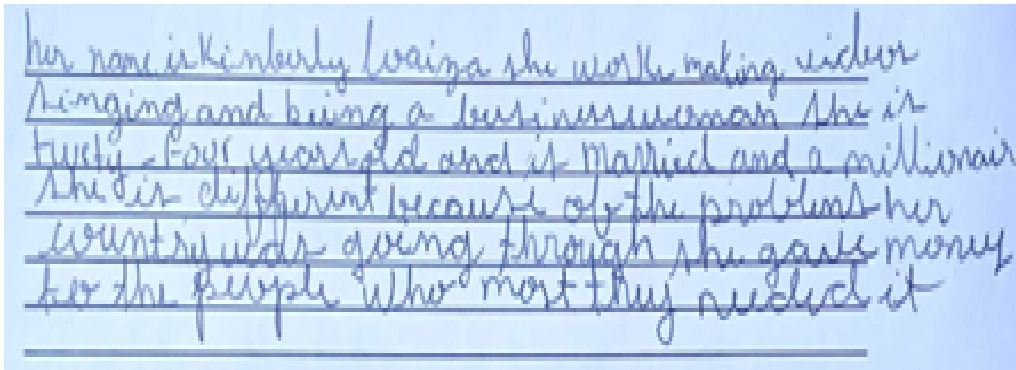 her name is Kimberly Loaiza she works making videos
singing and being a businesswoman she is
twety-four years old and is married and a millionair
she is different because of the problems her
country was going through she gave money
for the people who most they needed it